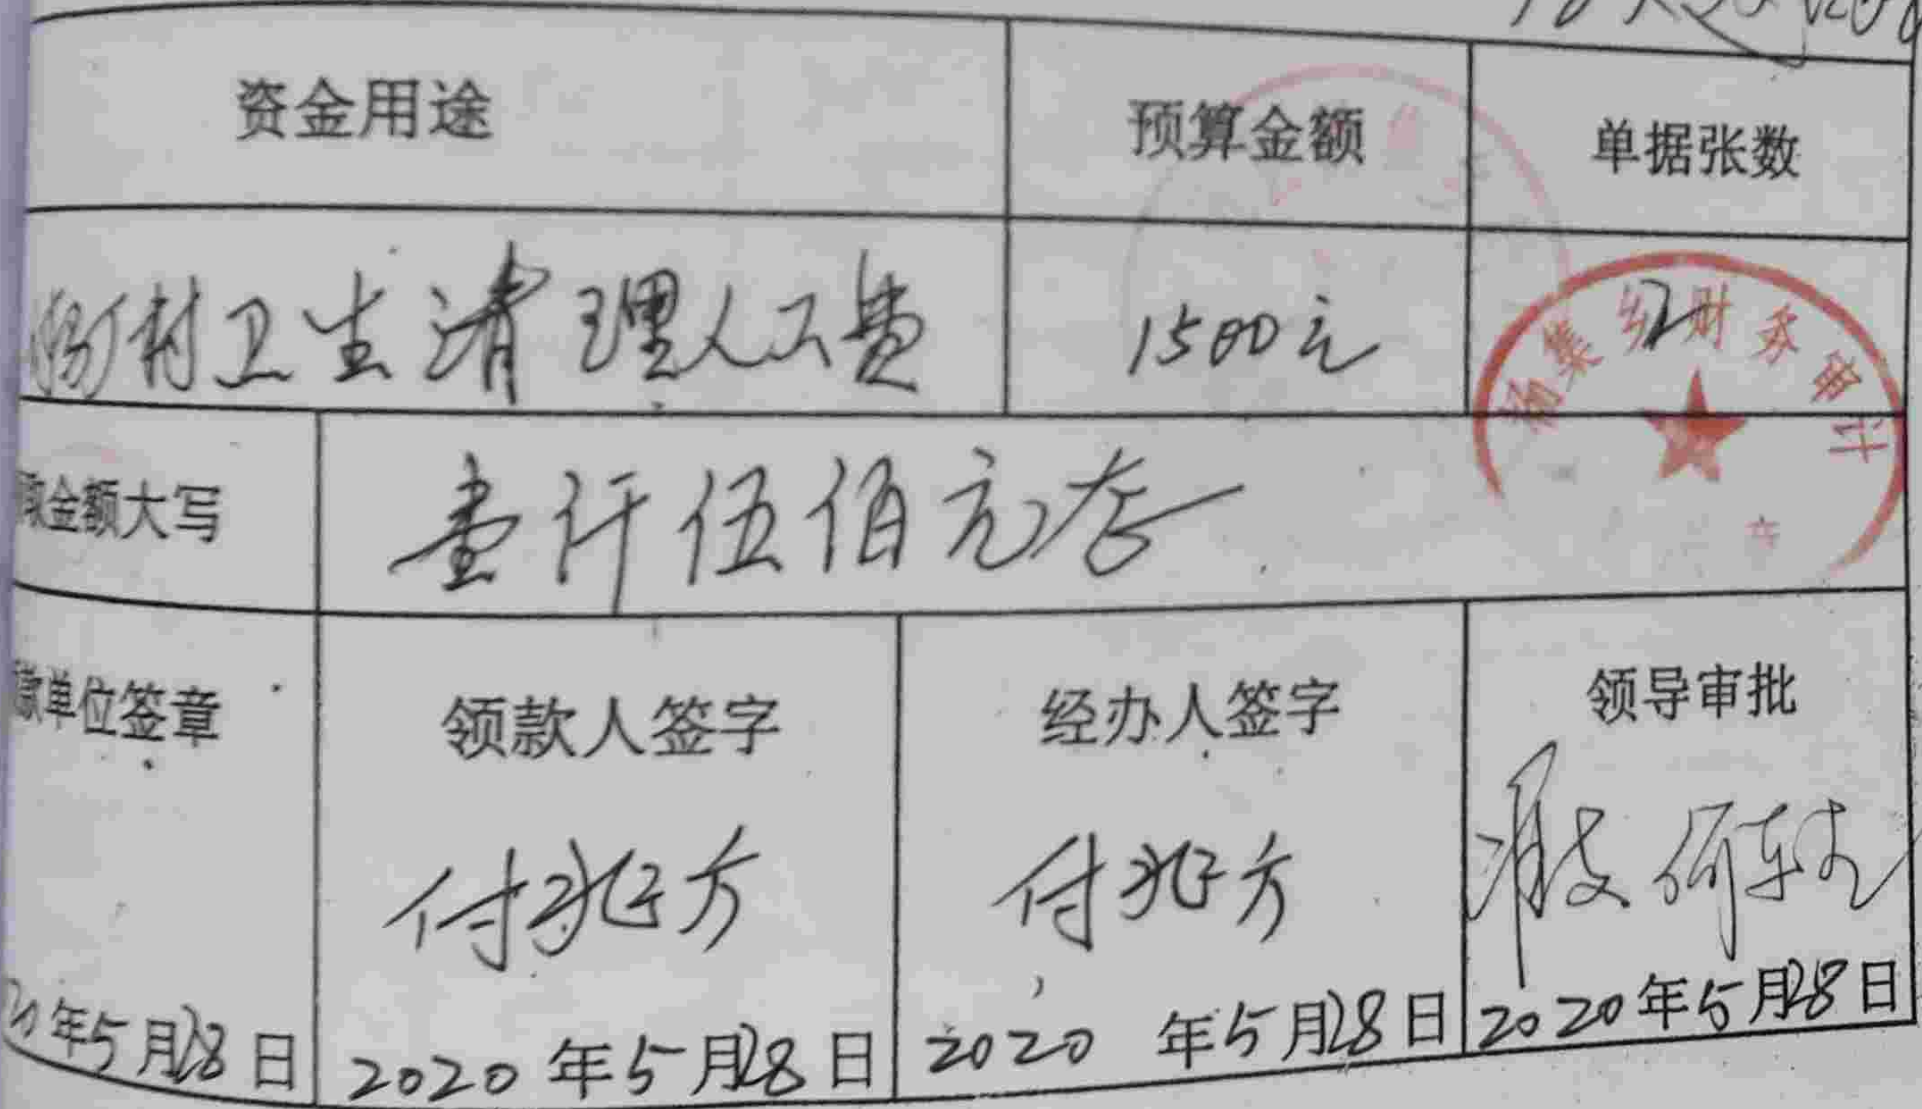 资金用途 预算金额 单据张数
村卫生清理人工费 1500元 2
集乡财务审计
章
取金额大写 壹仟伍佰元整
款单位签章 领款人签字 经办人签字 领导审批
付兆方 付兆方
年5月28日 2020年5月28日 2020年5月28日 2020年5月28日